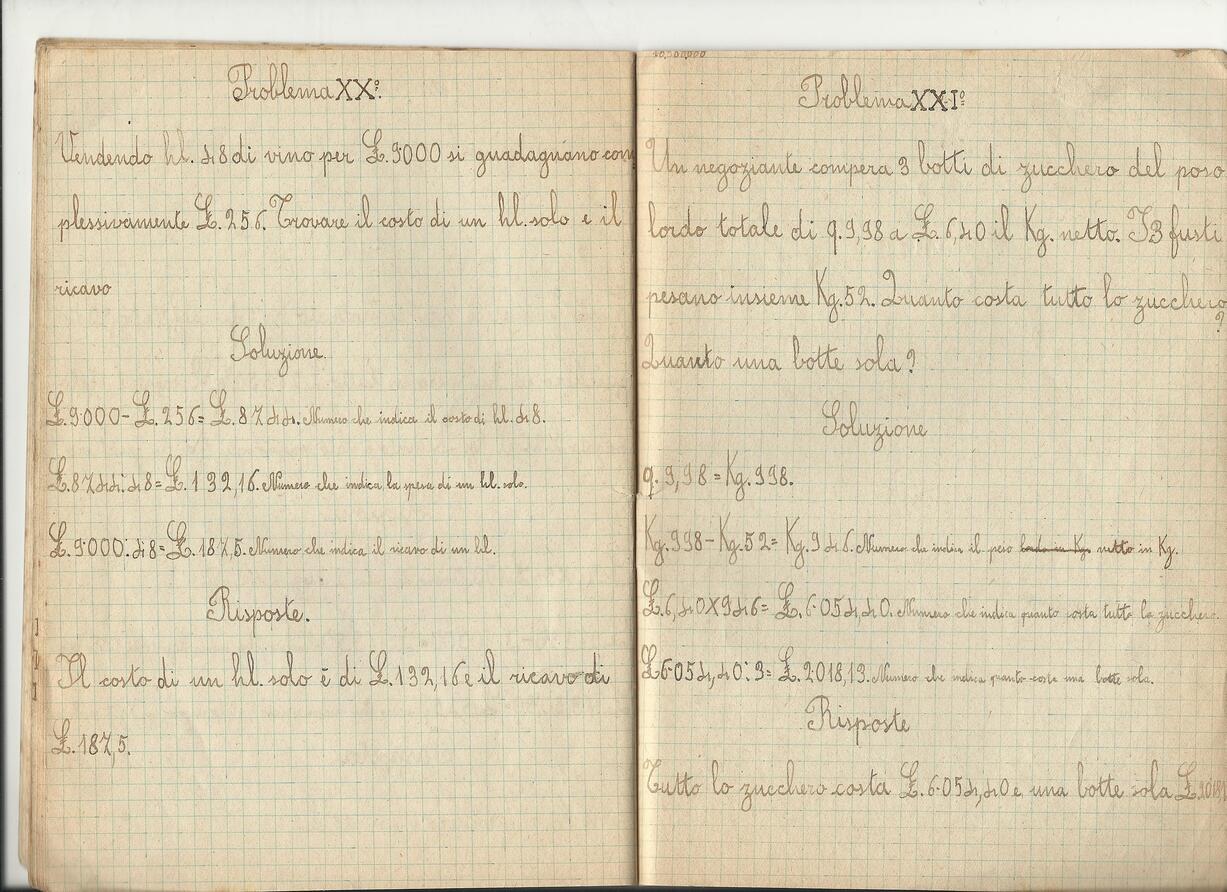 Problema XXº.
Vendendo hl. 48 di vino per £. 9000 si guadagnano com
plessivamente £. 256. Trovare il costo di un hl. solo e il
ricavo
Soluzione.
£. 9000 - £. 256 = £. 8744. Numero che indica il costo di hl. 48.
£. 8744 : 48 = £. 132,16. Numero che indica la spesa di un hl. solo.
£. 9000 : 48 = £. 187,5. Numero che indica il ricavo di un hl.
Risposte.
Il costo di un hl. solo è di £. 132,16 e il ricavo di
£. 187,5.
Problema XXIº
Un negoziante compera 3 botti di zucchero del peso
lordo totale di q. 9,98 a £. 6,40 il Kg. netto. I 3 fusti
pesano insieme Kg. 52. Quanto costa tutto lo zucchero
?
Quanto una botte sola?
Soluzione
q. 9,98 = Kg. 998.
Kg. 998 - Kg. 52 = Kg. 946. Numero che indica il peso lordo in Kg. netto in Kg.
£. 6,40 X 946 = £. 6054,40. Numero che indica quanto costa tutto lo zucchero.
£. 6054,40 : 3 = £. 2018,13. Numero che indica quanto costa una botte sola.
Risposte
Tutto lo zucchero costa £. 6054,40 e una botte sola £.